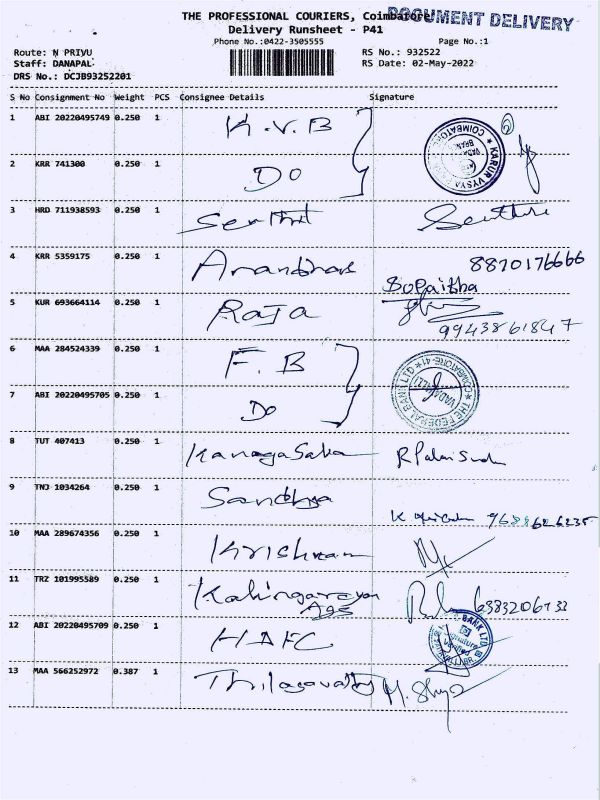 THE PROFESSIONAL COURIERS, Coimbatore
DOCUMENT DELIVERY
Delivery Runsheet - P41
Phone No.:0422-3505555
Page No.:1
Route: N PRIYU
RS No.: 932522
Staff: DANAPAL
RS Date: 02-May-2022
DRS No.: DCJB93252201
S No Consignment No Weight PCS Consignee Details Signature
1 ABI 20220495749 0.250 1 K.V.B
2 KRR 741300 0.250 1 DO
3 HRD 711938593 0.250 1
4 KRR 5359175 0.250 1 8870176666
5 KUR 693664114 0.250 1 Raja
9943861847
6 MAA 284524339 0.250 1 F.B
7 ABI 20220495705 0.250 1 Do
THE FEDERAL BANK
COIMBATORE-41
8 TUT 407413 0.250 1
9 TNJ 1034264 0.250 1 Sandhya
10 MAA 289674356 0.250 1 Krishnan
11 TRZ 101995589 0.250 1 Kalingarayan
Ags
12 ABI 20220495709 0.250 1
BANK LTD
13 MAA 566252972 0.387 1 Thilagavathy